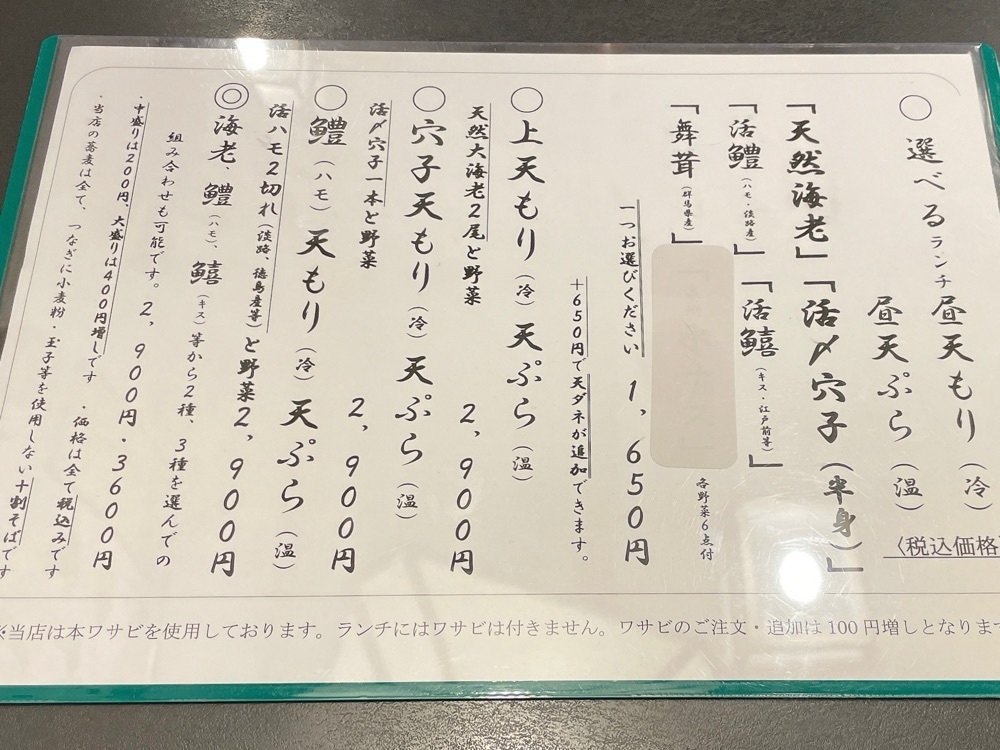 ○ 選べるランチ 昼天もり（冷）
昼天ぷら（温）
〈税込価格
「天然海老」「活〆穴子（半身）」
「活鱧（ハモ・淡路産）」「活鱚（キス・江戸前等）」
「舞茸（群馬県産）」
各野菜6点付
一つお選びください 1,650円
＋650円で天ダネが追加できます。
○ 上天もり（冷）天ぷら（温）
天然大海老2尾と野菜 2,900円
○ 穴子天もり（冷）天ぷら（温）
活〆穴子一本と野菜 2,900円
○ 鱧（ハモ）天もり（冷）天ぷら（温）
活ハモ2切れ（淡路、徳島産等）と野菜 2,900円
◎ 海老、鱧（ハモ）、鱚（キス）等から2種、3種を選んでの
組み合わせも可能です。2,900円・3600円
・中盛りは200円、大盛りは400円増しです ・価格は全て税込みです
・当店の蕎麦は全て、つなぎに小麦粉・玉子等を使用しない十割そばです
※当店は本ワサビを使用しております。ランチにはワサビは付きません。ワサビのご注文・追加は100円増しとなります